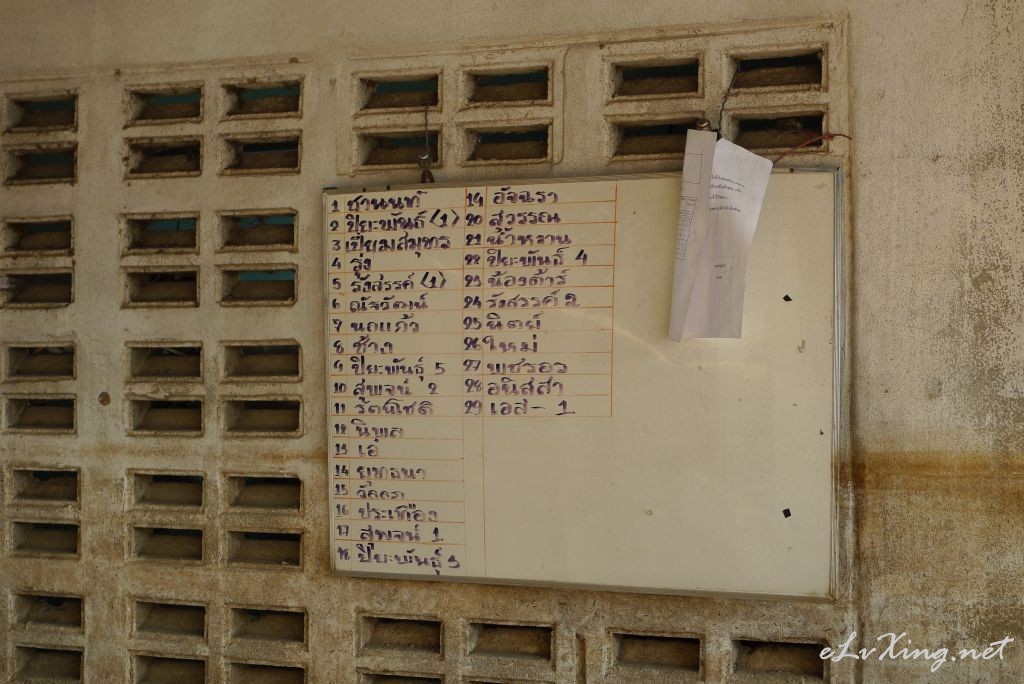 1 ชานนท์
2 ปิยะพันธ์ (1)
3 เปี่ยมสมุทร
4 รุ่ง
5 รังสรรค์ (1)
6 ณัจวัฒน์
7 นกแก้ว
8 ช้าง
9 ปิยะพันธุ์ 5
10 สุพจน์ 2
11 รัตน์โชติ
12 นิพล
13 เอ๋
14 ยุทธนา
15
16 ประเทือง
17 สุพจน์ 1
18 ปิยะพันธุ์ 3
19 อัจฉรา
20 สุวรรณ
21 น้ำหวาน
22 ปิยะพันธ์ 4
23 น้องต้าร์
24 รังสรรค์ 2
25 นิตย์
26 ใหม่
27 เพชรอร
28 อนิสสา
29 เอส - 1
eLvXing.net